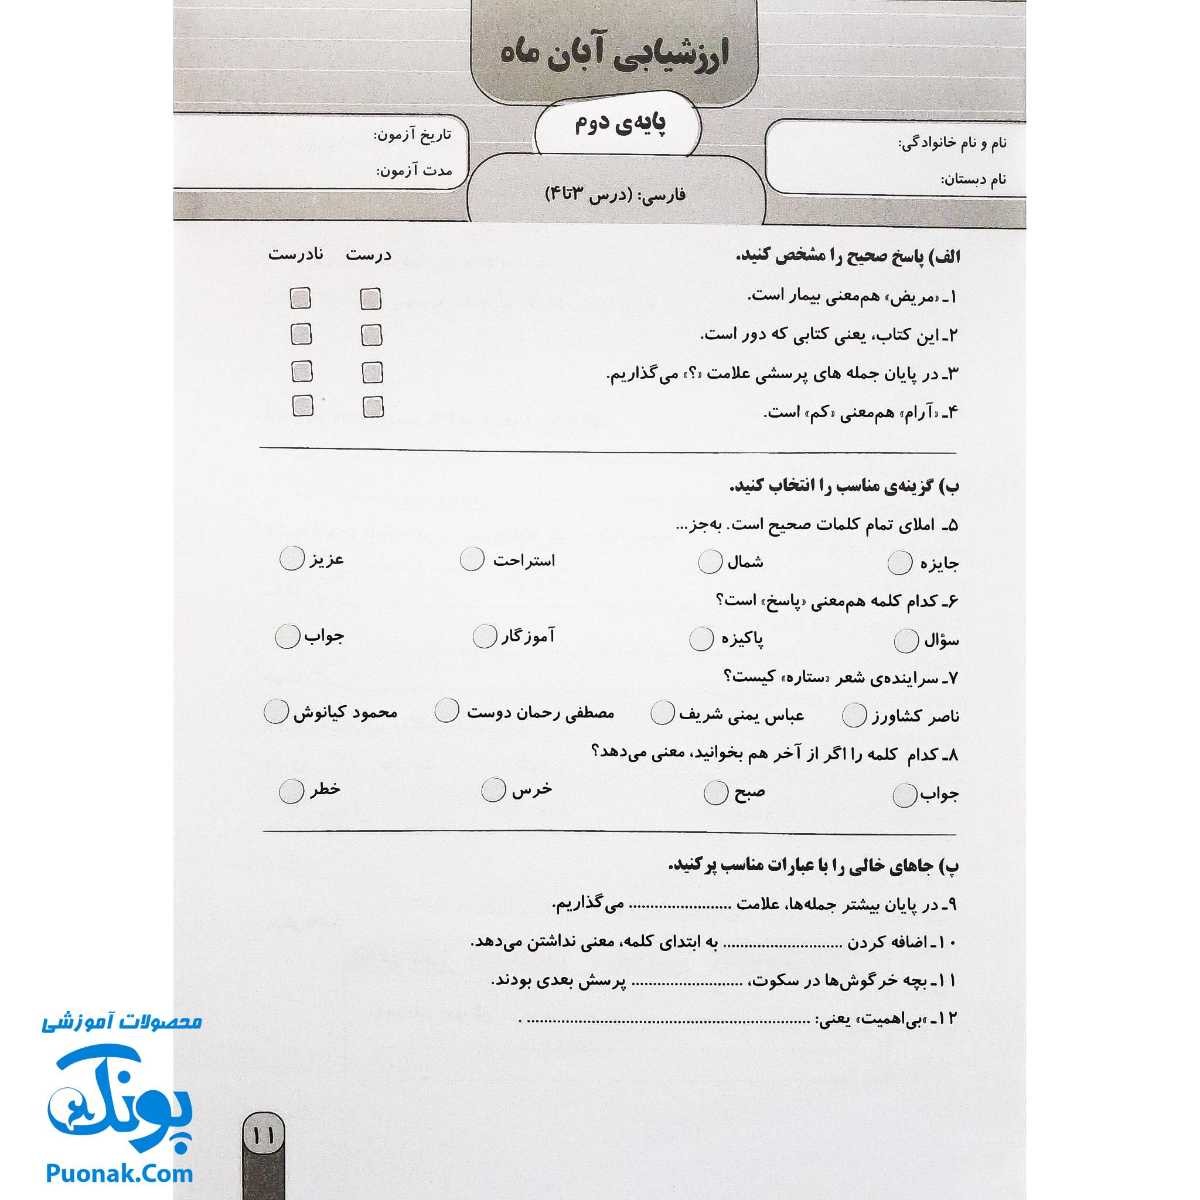 ارزشیابی آبان ماه
پایه‌ی دوم
فارسی: (درس ۳تا۴)
نام و نام خانوادگی:
نام دبستان:
تاریخ آزمون:
مدت آزمون:
الف) پاسخ صحیح را مشخص کنید. درست نادرست
۱ـ «مریض» هم‌معنی بیمار است.
۲ـ این کتاب، یعنی کتابی که دور است.
۳ـ در پایان جمله های پرسشی علامت «؟» می‌گذاریم.
۴ـ «آرام» هم‌معنی «کم» است.
ب) گزینه‌ی مناسب را انتخاب کنید.
۵ـ املای تمام کلمات صحیح است. به‌جز...
جایزه شمال استراحت عزیز
۶ـ کدام کلمه هم‌معنی «پاسخ» است؟
سؤال پاکیزه آموزگار جواب
۷ـ سراینده‌ی شعر «ستاره» کیست؟
ناصر کشاورز عباس یمنی شریف مصطفی رحمان دوست محمود کیانوش
۸ـ کدام کلمه را اگر از آخر هم بخوانید، معنی می‌دهد؟
جواب صبح خرس خطر
پ) جاهای خالی را با عبارات مناسب پر کنید.
۹ـ در پایان بیشتر جمله‌ها، علامت ........................ می‌گذاریم.
۱۰ـ اضافه کردن ............................ به ابتدای کلمه، معنی نداشتن می‌دهد.
۱۱ـ بچه خرگوش‌ها در سکوت، .......................... پرسش بعدی بودند.
۱۲ـ «بی‌اهمیت» یعنی: .................................................................. .
۱۱
محصولات آموزشی
پونک
Puonak.Com